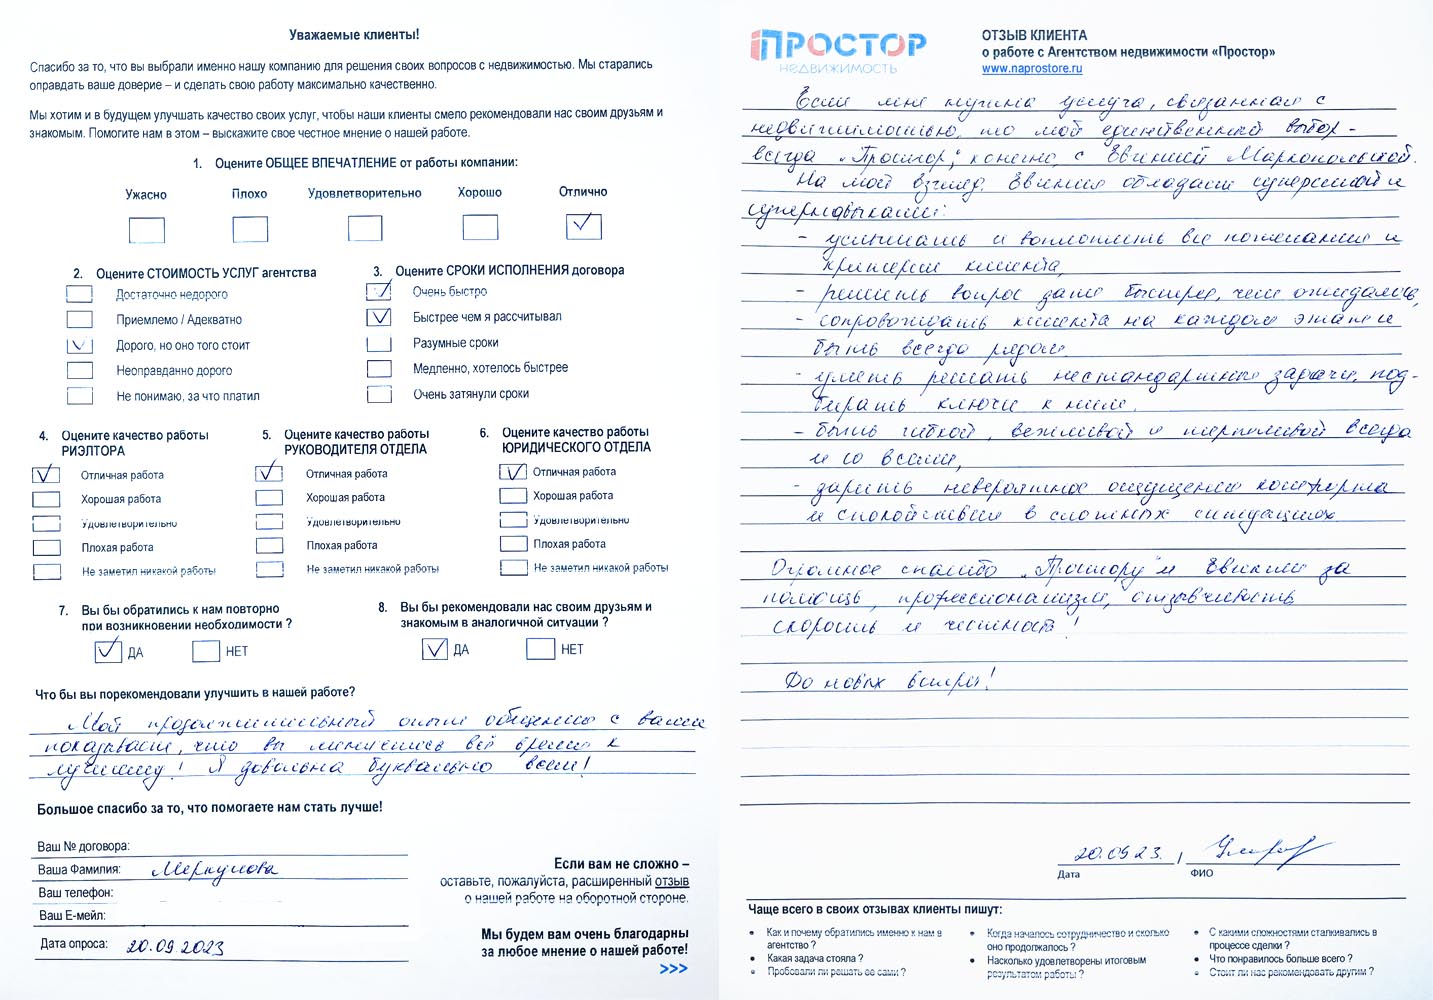 Уважаемые клиенты!
Спасибо за то, что вы выбрали именно нашу компанию для решения своих вопросов с недвижимостью. Мы старались
оправдать ваше доверие – и сделать свою работу максимально качественно.
Мы хотим и в будущем улучшать качество своих услуг, чтобы наши клиенты смело рекомендовали нас своим друзьям и
знакомым. Помогите нам в этом – выскажите свое честное мнение о нашей работе.
1. Оцените ОБЩЕЕ ВПЕЧАТЛЕНИЕ от работы компании:
Ужасно Плохо Удовлетворительно Хорошо Отлично
2. Оцените СТОИМОСТЬ УСЛУГ агентства
Достаточно недорого
Приемлемо / Адекватно
Дорого, но оно того стоит
Неоправданно дорого
Не понимаю, за что платил
3. Оцените СРОКИ ИСПОЛНЕНИЯ договора
Очень быстро
Быстрее чем я рассчитывал
Разумные сроки
Медленно, хотелось быстрее
Очень затянули сроки
4. Оцените качество работы
РИЭЛТОРА
Отличная работа
Хорошая работа
Удовлетворительно
Плохая работа
Не заметил никакой работы
5. Оцените качество работы
РУКОВОДИТЕЛЯ ОТДЕЛА
Отличная работа
Хорошая работа
Удовлетворительно
Плохая работа
Не заметил никакой работы
6. Оцените качество работы
ЮРИДИЧЕСКОГО ОТДЕЛА
Отличная работа
Хорошая работа
Удовлетворительно
Плохая работа
Не заметил никакой работы
7. Вы бы обратились к нам повторно
при возникновении необходимости ?
ДА НЕТ
8. Вы бы рекомендовали нас своим друзьям и
знакомым в аналогичной ситуации ?
ДА НЕТ
Что бы вы порекомендовали улучшить в нашей работе?
Мой продолжительный опыт общения с вами
показывает, что вы меняетесь всё время к
лучшему! Я довольна буквально всем!
Большое спасибо за то, что помогаете нам стать лучше!
Ваш № договора:
Ваша Фамилия: Меркулова
Ваш телефон:
Ваш E-мейл:
Дата опроса: 20.09.2023
Если вам не сложно –
оставьте, пожалуйста, расширенный отзыв
о нашей работе на оборотной стороне.
Мы будем вам очень благодарны
за любое мнение о нашей работе!
>>>
ПРОСТОР
НЕДВИЖИМОСТЬ
ОТЗЫВ КЛИЕНТА
о работе с Агентством недвижимости «Простор»
www.naprostore.ru
Если мне нужна услуга, связанная с
недвижимостью, то мой единственный выбор -
всегда "Простор", конечно, с Евгенией Маркопольской.
На мой взгляд, Евгения обладает суперсилой и
супернавыками:
- услышать и воплотить все пожелания и
критерии клиента,
- решить вопрос даже быстрее, чем ожидалось,
- сопровождать клиента на каждом этапе и
быть всегда рядом.
- уметь решать нестандартные задачи, под-
бирать ключи к ним,
- быть гибкой, вежливой и терпеливой всегда
и со всеми,
- дарить невероятное ощущение комфорта
и спокойствия в сложных ситуациях.
Огромное спасибо "Простору" и Евгении за
помощь, профессионализм, отзывчивость,
скорость и честность!
До новых встреч!
20.09.23. ,
Дата ФИО
Чаще всего в своих отзывах клиенты пишут:
• Как и почему обратились именно к нам в
агентство ?
• Какая задача стояла ?
• Пробовали ли решать ее сами ?
• Когда началось сотрудничество и сколько
оно продолжалось ?
• Насколько удовлетворены итоговым
результатом работы ?
• С какими сложностями сталкивались в
процессе сделки ?
• Что понравилось больше всего ?
• Стоит ли нас рекомендовать другим ?